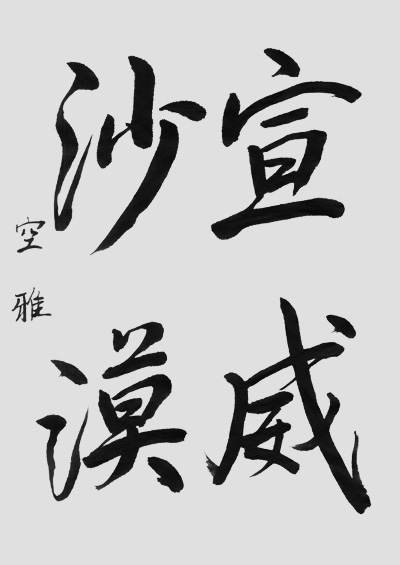 宣威
沙漠
空雅